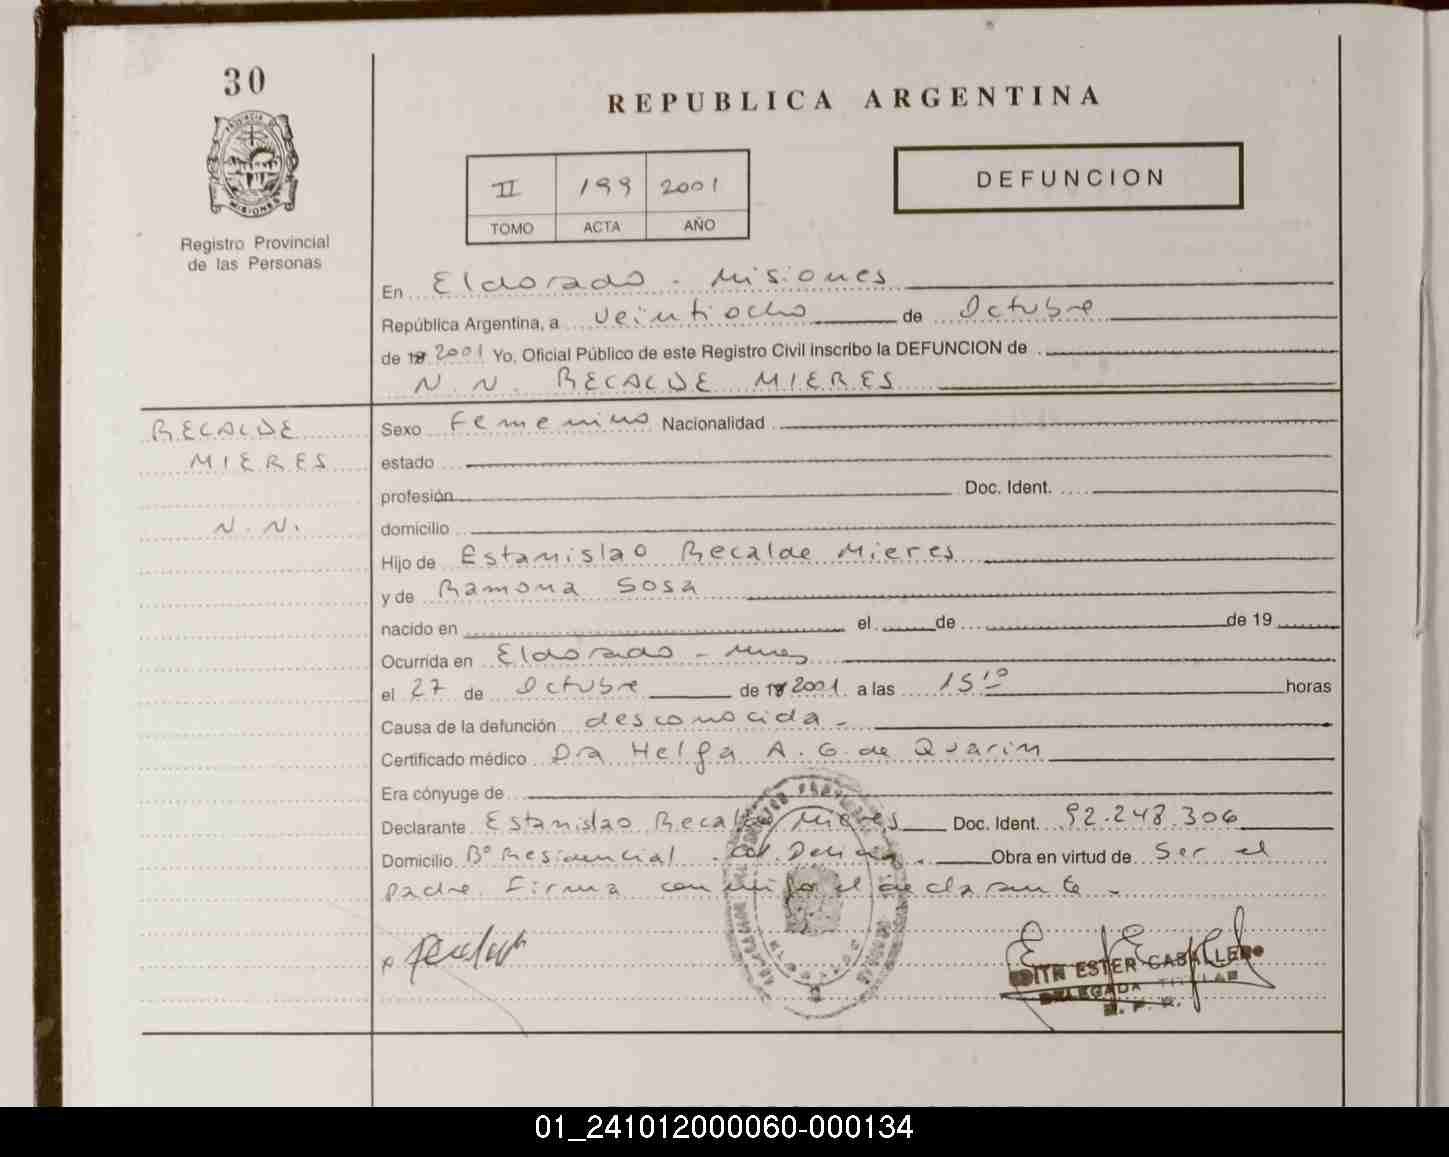 30
REPUBLICA ARGENTINA
PROVINCIA DE
MISIONES
Registro Provincial
de las Personas
II 199 2001
TOMO ACTA AÑO
DEFUNCION
En Eldorado - Misiones
República Argentina, a veintiocho de Octubre
de 19 2001 Yo, Oficial Público de este Registro Civil inscribo la DEFUNCION de
N. N. RECALDE MIERES
RECALDE
MIERES
N. N.
Sexo Femenino Nacionalidad
estado
profesión Doc. Ident.
domicilio
Hijo de Estanislao Recalde Mieres
y de Ramona Sosa
nacido en el de de 19
Ocurrida en Eldorado - Mnes
el 27 de Octubre de 19 2001 a las 15 10 horas
Causa de la defunción desconocida -
Certificado médico Dra Helga A. G. de Quarin
Era cónyuge de
Declarante Estanislao Recalde Mieres Doc. Ident. 92.248.306
Domicilio Bº Residencial - Col. Delicia. Obra en virtud de Ser el
padre. Firma conmigo el declarante -
EDITH ESTER CABALLERO
DELEGADA TITULAR
R. P. P.
01_241012000060-000134